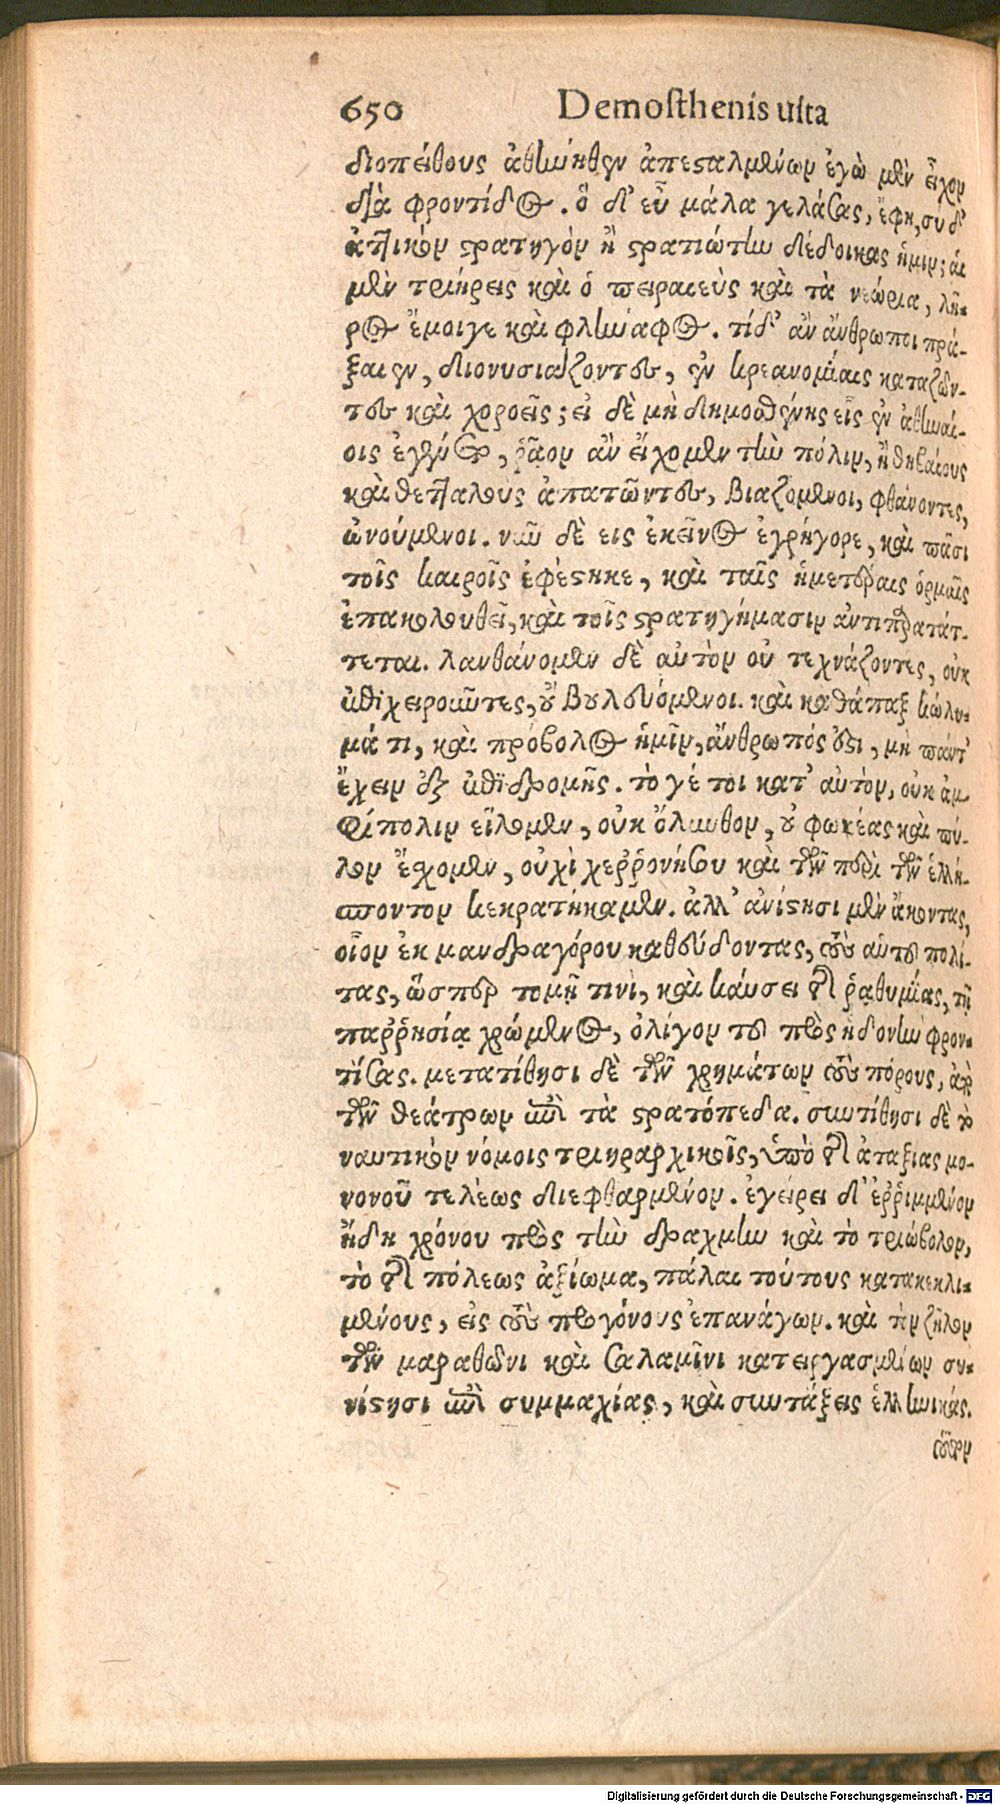 650 Demosthenis uita
διοπείθους ἀθήνηθεν ἀπεσταλμένων ἐγὼ μὲν εἶχον
διὰ φροντίδος. ὁ δ' εὖ μάλα γελάσας, ἔφη, σὺ δ'
ἀττικὸν στρατηγὸν ἢ στρατιώτην δέδοικας ἡμῖν; αἱ
μὲν τριήρεις καὶ ὁ πειραιεὺς καὶ τὰ νεώρια, λῆ-
ρος ἔμοιγε καὶ φλήναφος. τί δ' ἂν ἄνθρωποι πρά-
ξαιεν, διονυσιάζοντες, ἐν κρεανομίαις καταζῶν-
τες καὶ χοροῖς; εἰ δὲ μὴ δημοσθένης εἷς ἐν ἀθηναί-
οις ἐγένετο, ῥᾷον ἂν εἴχομεν τὴν πόλιν, ἢ θηβαίους
καὶ θετταλοὺς ἀπατῶντες, βιαζόμενοι, φθάνοντες,
ὠνούμενοι. νῦν δὲ εἷς ἐκεῖνος ἐγρήγορε, καὶ πᾶσι
τοῖς καιροῖς ἐφέστηκε, καὶ ταῖς ἡμετέραις ὁρμαῖς
ἐπακολουθεῖ, καὶ τοῖς στρατηγήμασιν ἀντιπαρατάτ-
τεται. λανθάνομεν δὲ αὐτὸν οὐ τεχνάζοντες, οὐκ
ἐπιχειροῦντες, οὐ βουλευόμενοι. καὶ καθάπαξ κώλυ-
μά τι, καὶ πρόβολος ἡμῖν, ἄνθρωπός ἐστι, μὴ πάντ'
ἔχειν ἐξ ἐπιδρομῆς. τὸ γέ τοι κατ' αὐτὸν, οὐκ ἀμ
φίπολιν εἵλομεν, οὐκ ὄλυνθον, οὐ φωκέας καὶ πύ-
λον ἔχομεν, οὐχὶ χερῤῥονήσου καὶ τῶν περὶ τὸν ἑλλή-
σποντον κεκρατήκαμεν. ἀλλ' ἀνίστησι μὲν ἄκοντας,
οἷον ἐκ μανδραγόρου καθεύδοντας, τοὺς αὑτοῦ πολί-
τας, ὥσπερ τομῇ τινὶ, καὶ καύσει τῆς ῥᾳθυμίας, τῇ
παῤῥησίᾳ χρώμενος, ὀλίγον τοῦ πρὸς ἡδονὴν φρον-
τίσας. μετατίθησι δὲ τῶν χρημάτων τοὺς πόρους, ἀπὸ
τῶν θεάτρων ἐπὶ τὰ στρατόπεδα. συντίθησι δὲ τὸ
ναυτικὸν νόμοις τριηραρχικοῖς, ὑπὸ τῆς ἀταξίας μο-
νονοῦ τελέως διεφθαρμένον. ἐγείρει δ' ἐῤῥιμμένον
ἤδη χρόνου πρὸς τὴν δραχμὴν καὶ τὸ τριώβολον,
τὸ τῆς πόλεως ἀξίωμα, πάλαι τούτους κατακεκλι-
μένους, εἰς τοὺς προγόνους ἐπανάγων. καὶ τὸν ζῆλον
τῶν μαραθῶνι καὶ Σαλαμῖνι κατειργασμένων συ-
νίστησι ἐπὶ συμμαχίας, καὶ συντάξεις ἑλληνικάς.